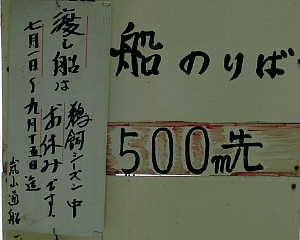 船のりば
500m先
渡し船は
鵜飼シーズン中
お休みです。
七月一日〜九月十五日迄
嵐山通船